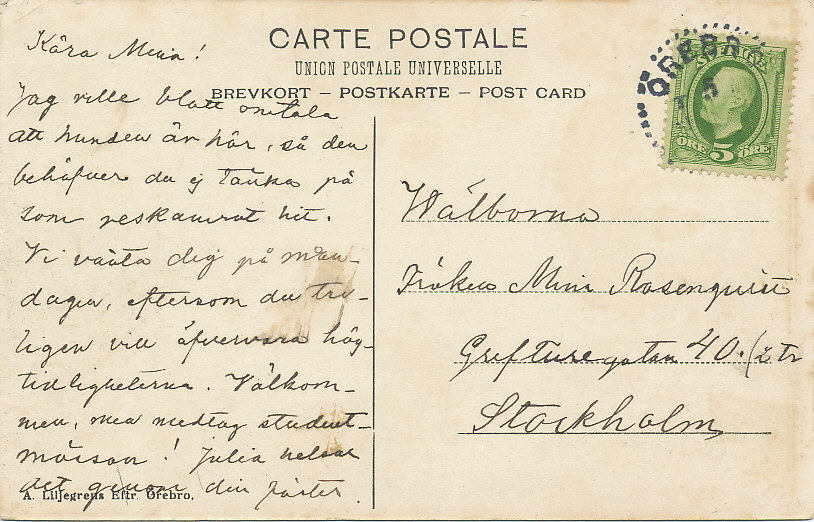 Kära Mina!
CARTE POSTALE
UNION POSTALE UNIVERSELLE
BREVKORT – POSTKARTE – POST CARD
Jag ville blott omtala
att hunden är här, så den
behöfver du ej tänka på
som reskamrat hit.
Vi vänta dig på mån-
dagen, eftersom du tro-
ligen vill öfvervara hög-
tidligheterna. Välkom-
men, men medtag student-
mössan! Julia helsar
det genom din faster
A. Liljegrens Eftr. Örebro.
ÖREBRO
5
SVERIGE
ÖRE 5 ÖRE
Wälborna
Fröken Mina Rosenquist
Grefturegatan 40. / 2 tr
Stockholm